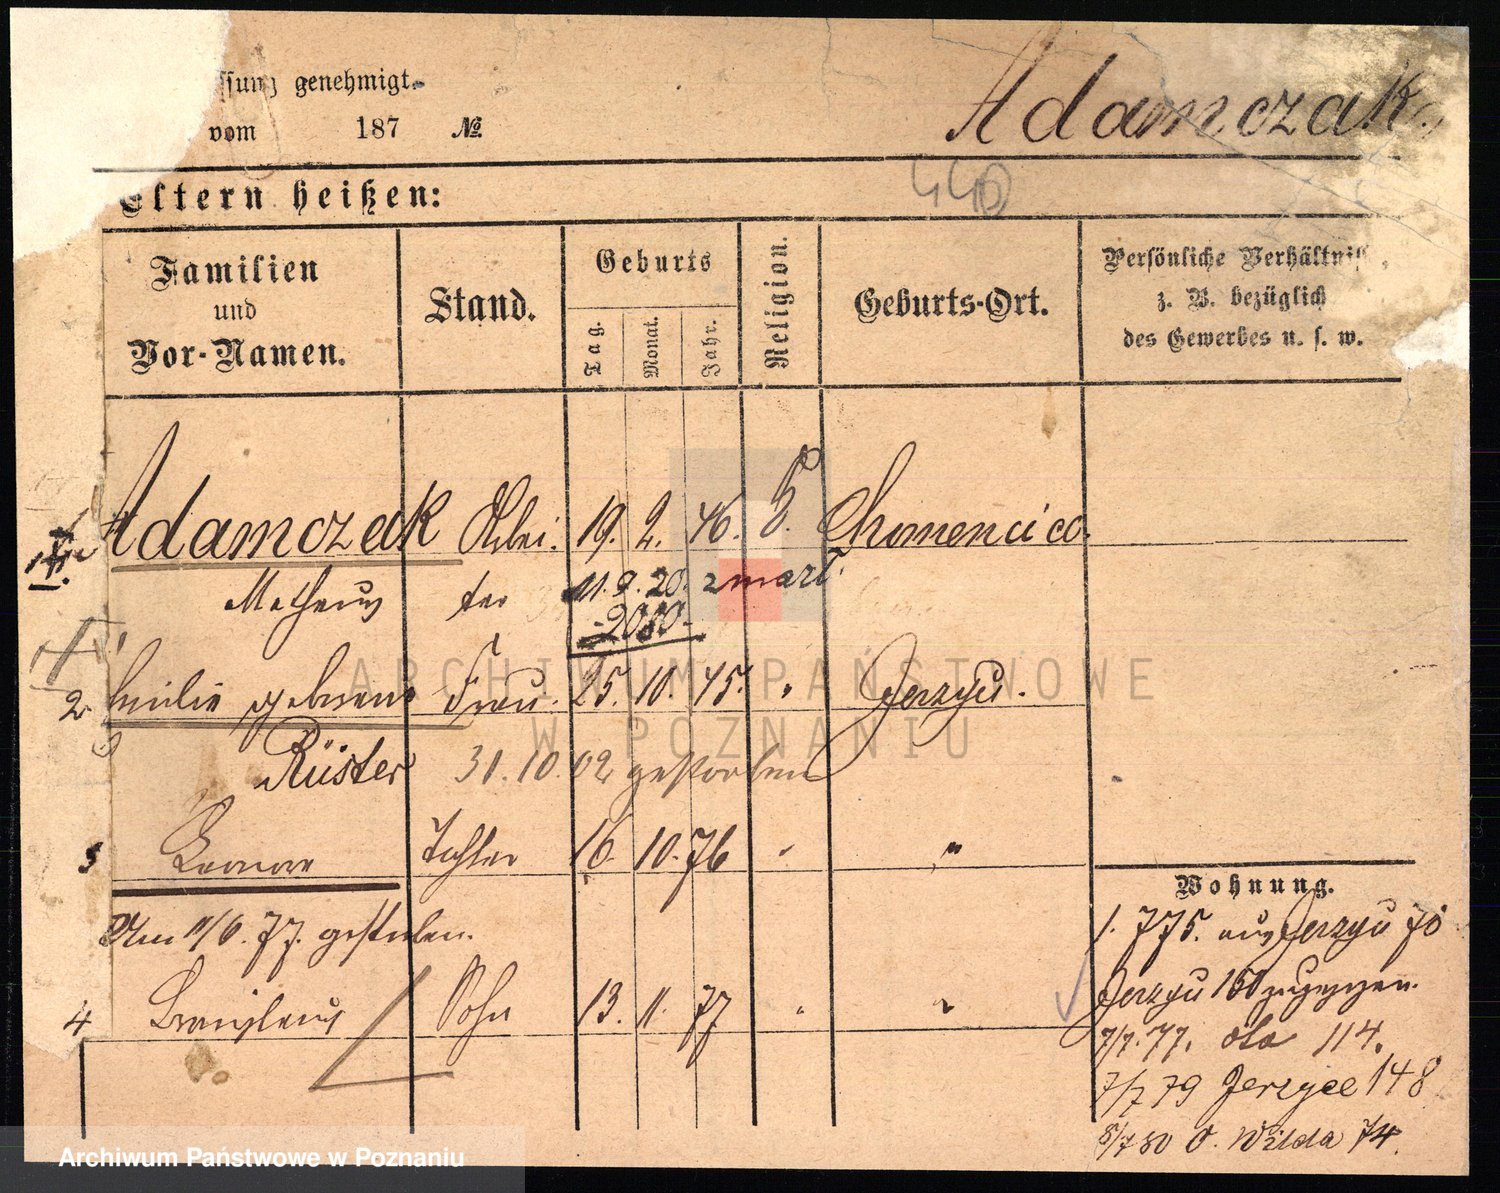 ssung genehmigt.
vom 187 №.
Adamczak.
440
Eltern heißen:
Familien
und
Vor-Namen.
Stand.
Geburts
Tag.
Monat.
Jahr.
Religion.
Geburts-Ort.
Persönliche Verhältniss
z. B. bezüglich
des Gewerbes u. s. w.
Adamczak Arbei. 19. 2. 46. Chomencice.
Matheus ter 11. 9. 20. zmarł.
-2080-
2 Emilie geborene Frau. 25. 10. 45. " Jerzyce.
Rüster 31. 10. 02 gestorben
3 Leonore Tochter 16. 10. 76 " "
Am 11/6. 77. gestorben.
4 Bronislaus Sohn 13. 11. 77 " "
Wohnung.
1. 7 75. aus Jerzyce 70
Jerzyce 150 zugezogen.
7/7. 77. dto 114.
7/7 79 Jerzyce 148
8/7 80 O. Wilda 74.
ARCHIWUM PAŃSTWOWE
W POZNANIU
Archiwum Państwowe w Poznaniu